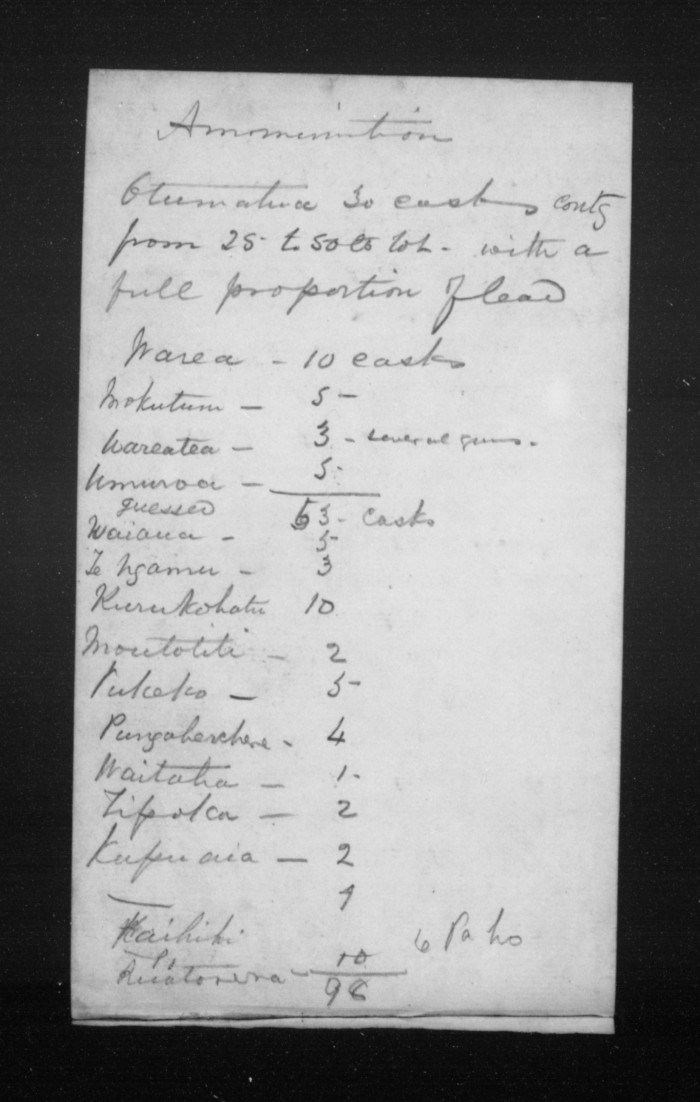 Ammunition
Otumatua 30 casks contg
from 25 to 50 lb wt. - with a
full proportion of lead
Warea - 10 casks
Mokutunu - 5 -
Wareatea - 3 - several guns.
Umuroa - 5
guessed 53 - casks
Waiaua - 5
Te Ngamu - 3
Kurukohatu 10
Moutotiti - 2
Pukeko - 5
Pungaherehere - 4
Waitaha - 1 -
Tipoka - 2
Kapuaia - 2
Kaihihi 6 Pa ho
10
Ruatorera - 98